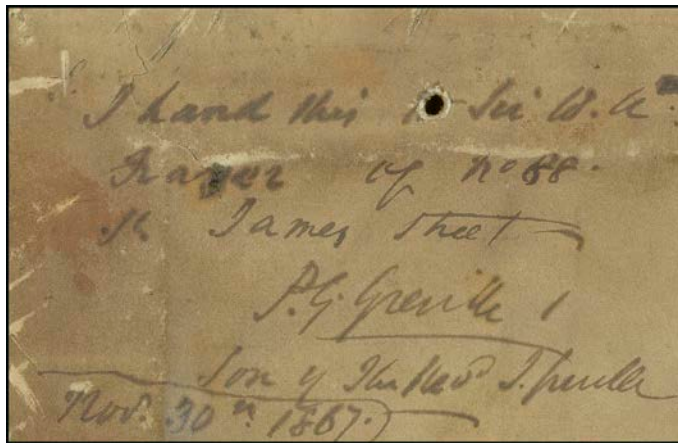 I hand this to Sir W. A.
Frazer of No 88.
St. James Street
P. G. Greville
Son of the Revd J. Greville
Nov. 30th 1867.